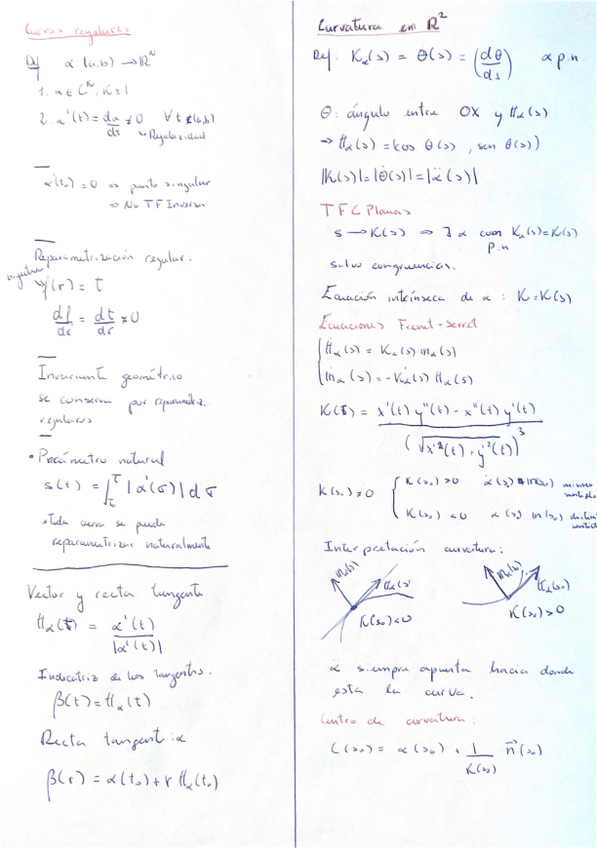 Curvas regulares
Def α (a,b) → ℝᴺ
1. α ∈ Cᴷ, K ≥ 1
2. α'(t) = dα/dt ≠ 0 ∀ t ∈ (a,b)
↳ Regularidad
α'(t₀) = 0 ⇒ punto singular
⇒ No TF Inversa
Reparametrización regular.
f(r) = t
df/dr = dt/dr ≠ 0
Invariante geométrico
se conserva por reparametriz.
regulares
• Parámetro natural
s(t) = ∫ |α'(σ)| dσ
Toda curva se puede
reparametrizar naturalmente
Vector y recta tangente
𝐭α(t) = α'(t)/|α'(t)|
Indicatriz de las tangentes.
β(t) = 𝐭α(t)
Recta tangente:
β(r) = α(t₀) + r 𝐭α(t₀)
Curvatura en ℝ²
Def. Kα(s) = θ̇(s) = (dθ/ds) α p.n.
θ: ángulo entre OX y 𝐭α(s)
⇒ 𝐭α(s) = (cos θ(s), sen θ(s))
|K(s)| = |θ̇(s)| = |α̈(s)|
TFC Planas
s → K(s) ⇒ ∃ α con Kα(s) = K(s)
p.n
salvo congruencias.
Ecuación intrínseca de α : K = K(s)
Ecuaciones Frenet-serret
𝐭̇α(s) = Kα(s) 𝐧α(s)
𝐧̇α(s) = -Kα(s) 𝐭α(s)
K(t) = x'(t) y''(t) - x''(t) y'(t) / (√x'²(t) + y'²(t))³
K(s₀) ≠ 0 { K(s₀) > 0 α̈(s₀) 𝐧(s₀) mismo sentido
K(s₀) < 0 α̈(s₀) 𝐧(s₀) distinto sentido
Interpretación curvatura:
𝐧α(s) 𝐭α(s) K(s₀) < 0
𝐧α(s) 𝐭α(s₀) K(s₀) > 0
α̈ siempre apunta hacia donde
esta la curva.
Centro de curvatura:
C(s₀) = α(s₀) + 1/K(s₀) n⃗(s₀)